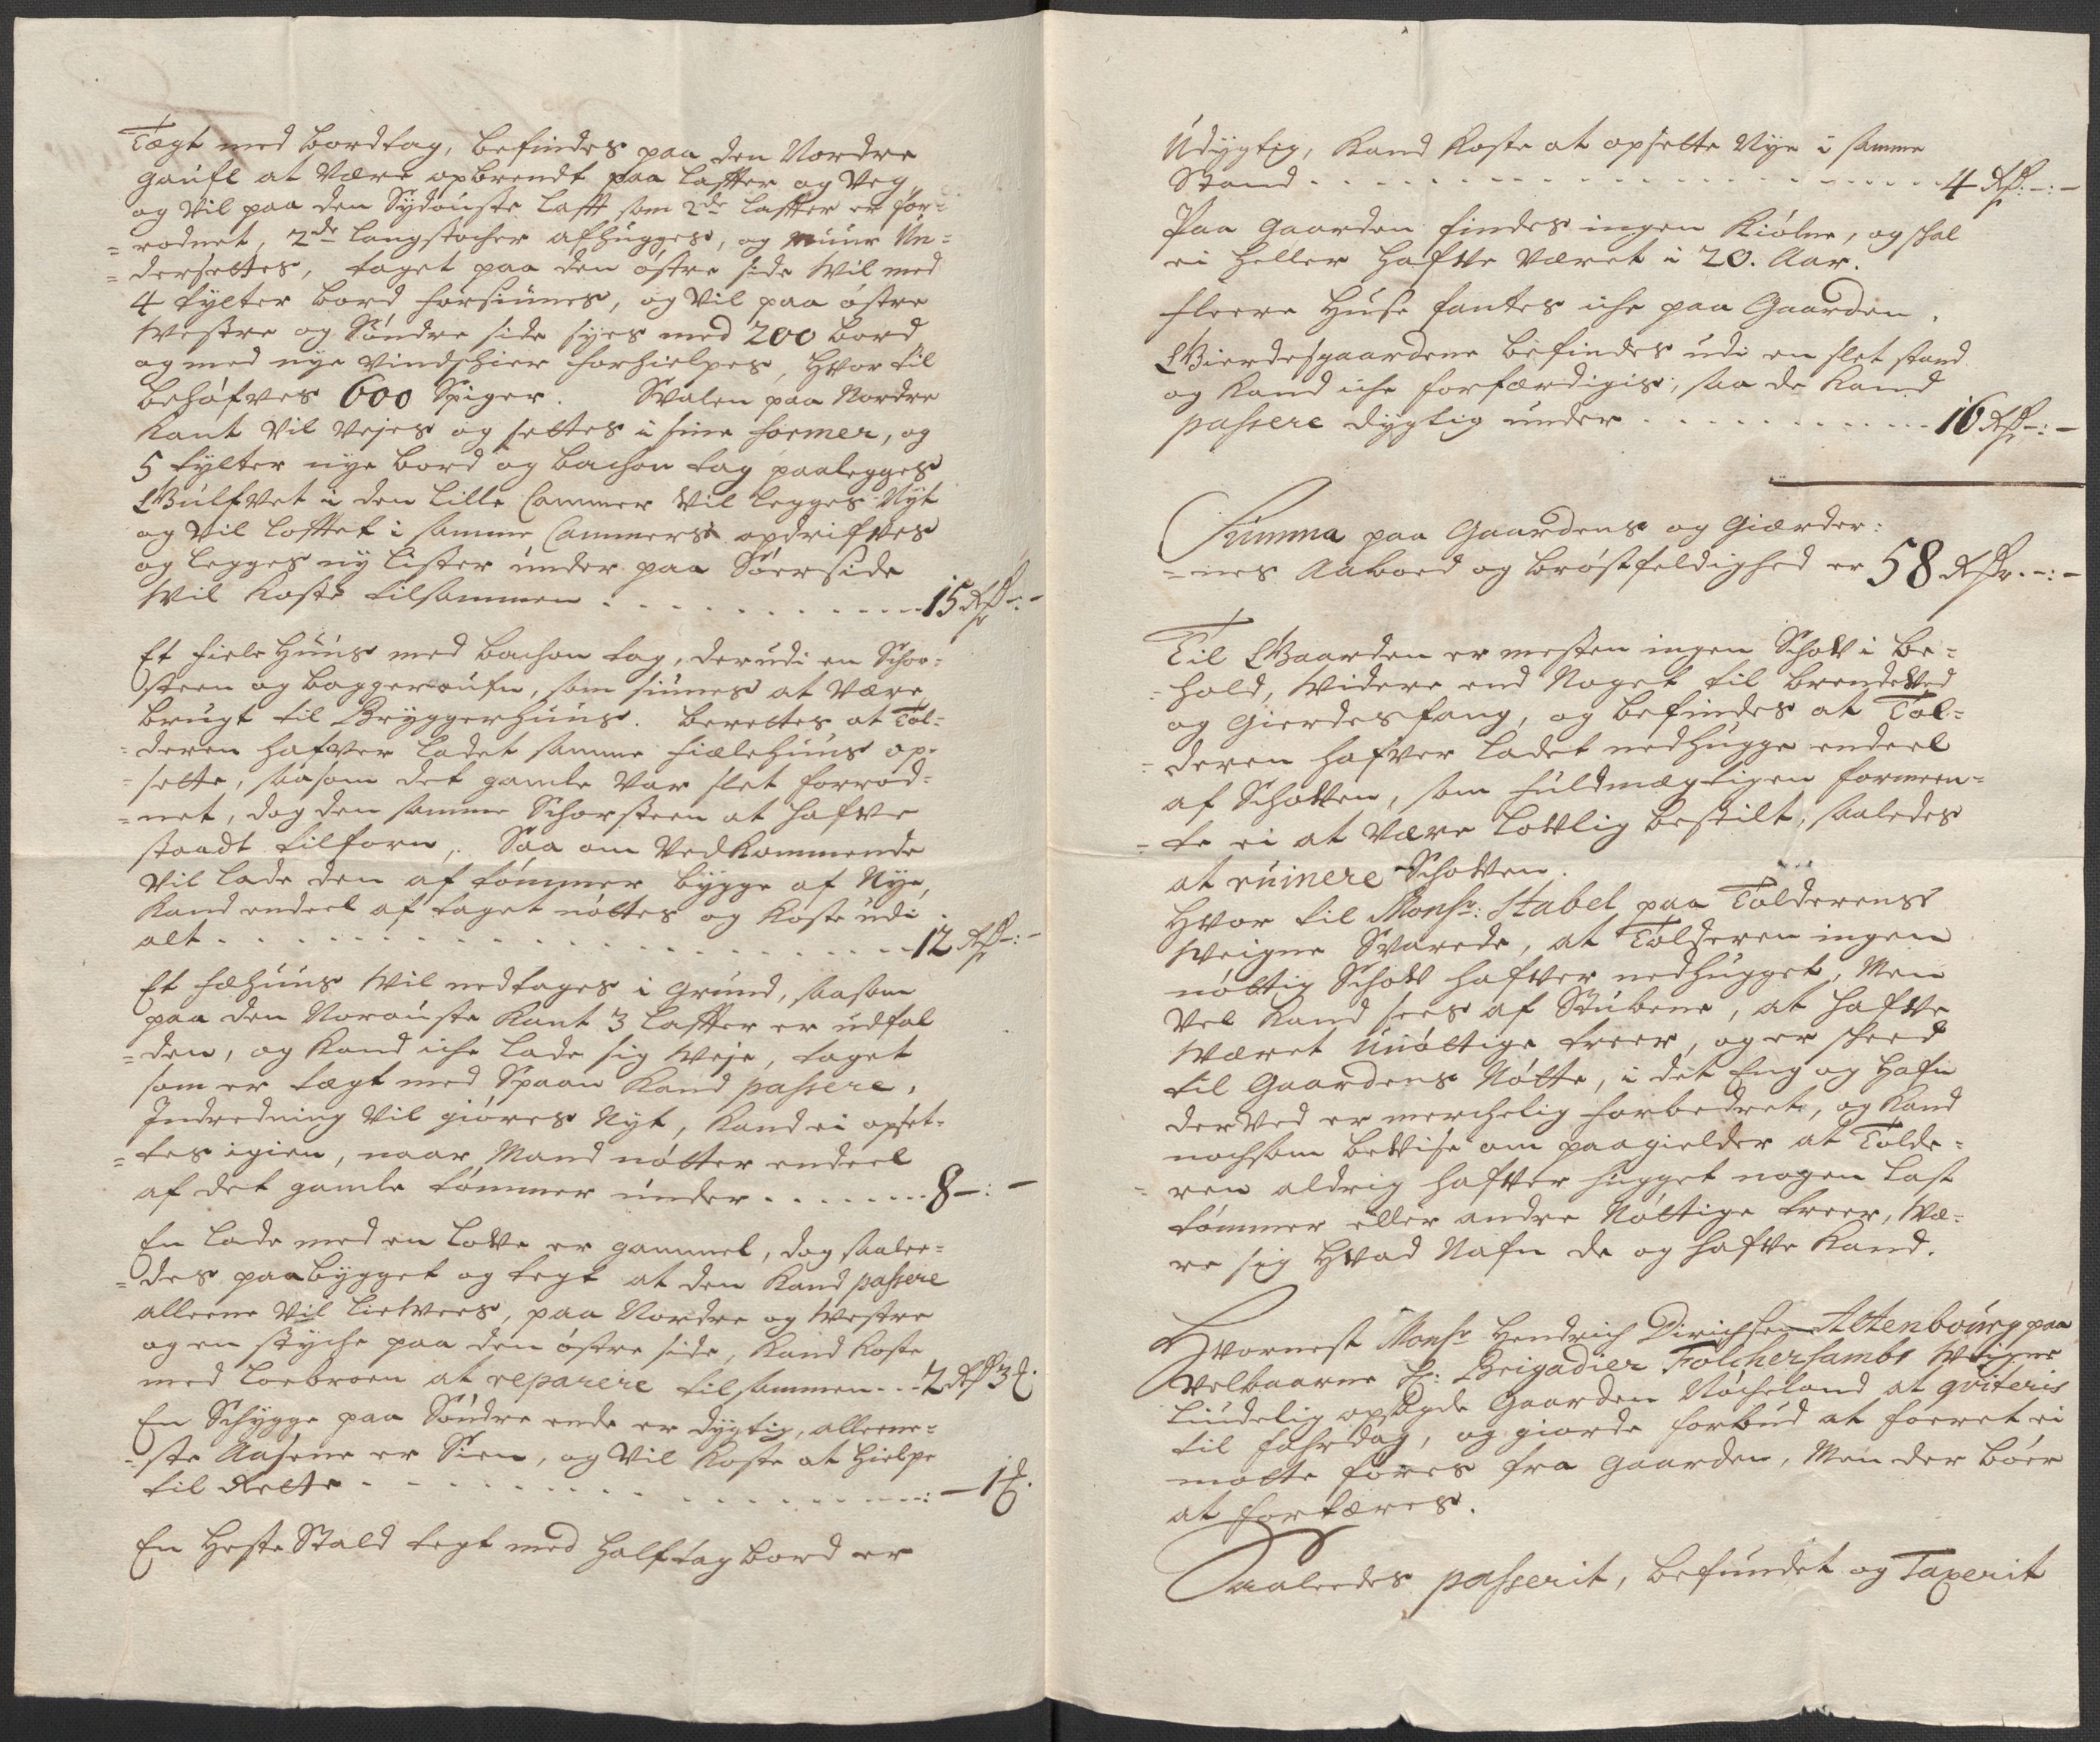 Tægt med bordtag, befindes paa den Nordre
gaufl at være opbrendt paa laffter og veg
og vil paa den Sydøuste lafft som 2de laffter er for-
=rodnet, 2de langstocher afhugges, og muur Un=
=dersettes, taget paa den østre side Wil med
4 tylter bord forsiunes, og Vil paa østre
Westre og Søndre side syes med 200 bord
og med nye Vindschier forhielpes, hvor til
behøfves 600 Spiger. Svalen paa Nordre
kant Vil Vejes og settes i sine former, og
5 tylter nye bord og bachon tag paalegges
Gulfvet i den Lille Cammer Vil legges Nyt
og Vil lofftet i samme Cammers opdrifves
og legges ny lister under paa Søerside
Wil koste tilsammen . . . . . . . . . . . 15 Rdr -:-
Et fiele Huus med bachon tag, derudi en Schor=
steen og baggeroufn, som siunes at være
brugt til Bryggerhuus. berettes at Tol=
=deren hafver ladet samme fiælehuus op=
=sette, saasom det gamle var slet forrod=
=net, dog den samme Schorsteen at hafve
staadt tilforn. Saa om Vedkommende
Vil lade den af tømmer bygge af Nye,
kand endeel af taget nøttes og koste udi
alt . . . . . . . . . . . . . . . . . . . 12 Rdr -:-
Et fæhuus Wil nedtages i Grund, saasom
paa den Norouste kant 3 laffter er udfal
=den, og kand iche lade sig Weje, taget
som er tægt med Spaan kand passere,
Indredning Vil giøres Nyt, kand ei opset=
=tes igien, naar Mand nøtter endeel
af det gamle tømmer under . . . . . . . 8 -:-
En lade med en lofve er gammel, dog saalee=
=des paabygget og tegt at den kand passere
alleene Vil liewees, paa Nordre og Westre
og en styche paa den østre side, kand koste
med loebroen at reparere tilsammen . . . 2 Rdr 3 ℔.
En Schygge paa Søndre ende er dygtig, alleene=
=ste Aasene er Sien, og Vil koste at hielpe
til Rette . . . . . . . . . . . . . . . : - 1 ℔.
En Heste Stald tegt med halftag bord er
Udygtig, kand koste at opsette Nye i samme
Stand . . . . . . . . . . . . . . . . . . 4 Rdr -:-
Paa Gaarden findes ingen Kiølne, og skal
ei heller hafve været i 20. Aar.
fleere Huse fantes iche paa Gaarden.
Gierdesgaardene befindes udi en slet stand
og kand iche forfærdigis, saa de kand
passere dygtig under . . . . . . . . . . 16 Rdr -:-
Summa paa Gaardens og Gierder:
=nes Aaboed og brøstfeldighed er 58 Rdr. -:-
Til Gaarden er mesten ingen Schov i be=
=hold, Widere end Noget til brendeVed
og Gierdesfang, og befindes at Tol=
=deren hafver ladet nedhugge endeel
af Schoven, som fuldmægtigen formeen=
=te ei at være lovlig bestilt, saaledes
at ruinere Schoven.
Hvor til Monsr: Stabel paa Tolderens
Weigne Svarede, at Tolderen ingen
nøttig Schov hafver nedhugget, Men
vel kand sees af Stubene, at hafve
Wæret Unøttige treer, og er skeed
til Gaardens Nøtte, i det Eng og hafn
derved er merchelig forbedret, og kand
nochsom bevise om paagielder at Tolde=
=ren aldrig hafver hugget nogen last
tømmer eller andre Nøttige treer, Wæ=
re sig hvad Nafn de og hafve kand.
Hvornest Monsr Hendrich Dirichsen Altenbourg paa
Velbaarne Hr: Brigadier Tolchersambs Weigne
liudelig opsagde Gaarden Nøcheland at qviteris
til fahrdag, og giorde forbud at foeret ei
motte føres fra Gaarden, Men der bøer
at fortæres.
Saaleedes passerit, befundet og Taxerit